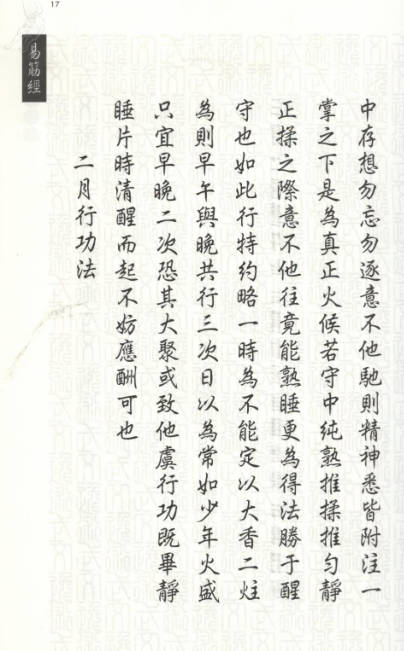 17
易筋經
中存想勿忘勿逐意不他馳則精神悉皆附注一
掌之下是為真正火候若守中純熟推揉推勻靜
正揉之際意不他往竟能熟睡更為得法勝于醒
守也如此行特約略一時為不能定以大香二炷
為則早午與晚共行三次日以為常如少年火盛
只宜早晚二次恐其大聚或致他虞行功既畢靜
睡片時清醒而起不妨應酬可也
二月行功法